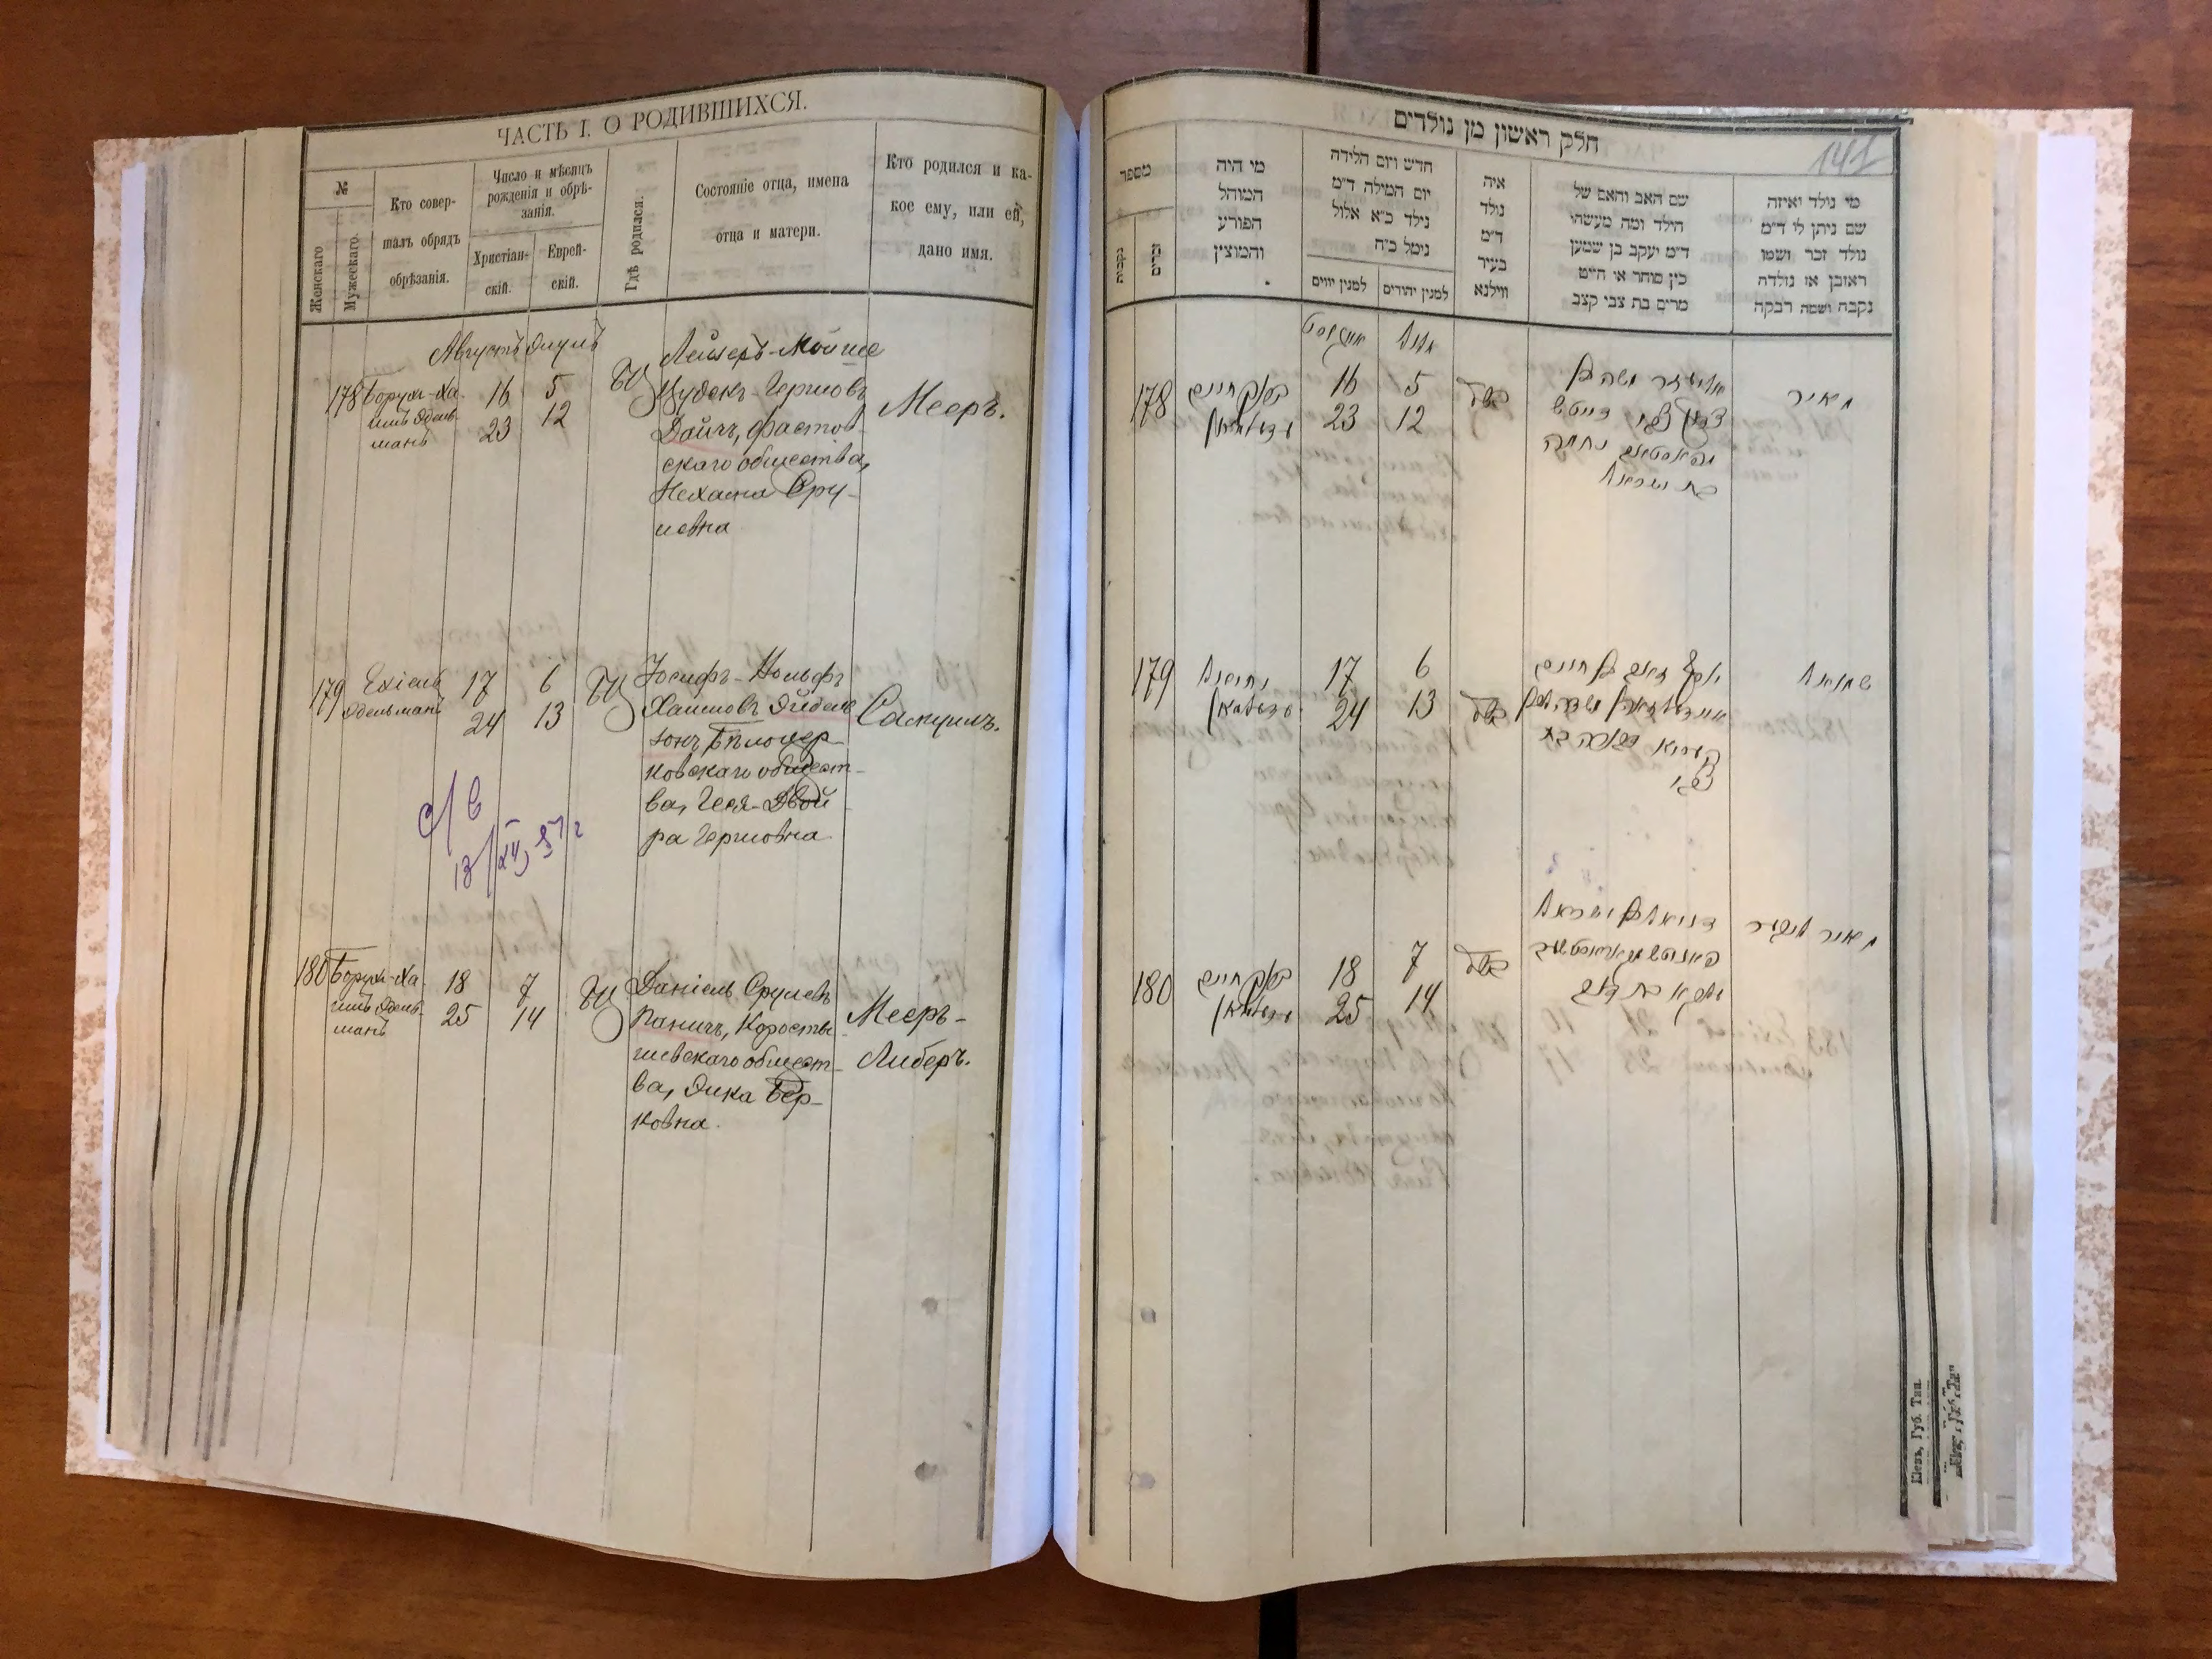 ЧАСТЬ I. О РОДИВШИХСЯ.
№
Женскаго
Мужескаго.
Кто совер-
шалъ обрядъ
обрѣзанія.
Число и мѣсяцъ
рожденія и обрѣ-
занія.
Христіан-
скій.
Еврей-
скій.
Гдѣ родился.
Состояніе отца, имена
отца и матери.
Кто родился и ка-
кое ему, или ей,
дано имя.
Августъ Элулъ
178 Борухъ-Ха-
имъ Эдель-
манъ
16 5
23 12
БЦ
Лейзеръ-Мойше
Цудекъ-Гершовъ
Дайчъ, Фастов-
скаго общества,
Нехама Сру-
левна
Мееръ.
179 Ехіель
Эдельманъ
17 6
24 13
БЦ
Іосифъ-Вольфъ
Хаимовъ Эйдель-
зонъ Бѣлоцер-
ковскаго общест-
ва, Геня-Двой
ра Гершовна
Самуилъ.
180 Борухъ-Ха
имъ Эдель-
манъ
18 7
25 14
БЦ
Даніель Срулевъ
Паничъ, Коросты-
шевскаго общест-
ва, Эика Бер-
ковна.
Мееръ-
Либеръ.
141
חלק ראשון מן נולדים
מספר
נקבות
זכרים
מי היה
המוהל
הפורע
והמוצץ
חדש ויום הלידה
יום המילה ד״מ
נילד כ״א אלול
נימל כ״ח
למנין יווים
למנין יהודים
איה
נולד
ד״מ
בעיר
ווילנא
שם האב והאם של
הילד ומה מעשהו
ד״מ יעקב בן שמען
כץ סוחר או חייט
מרים בת צבי קצב
מי נולד ואיזה
שם ניתן לו ד״מ
נולד זכר ושמו
ראובן או נולדה
נקבה ושמה רבקה
אויגוסט אלול
178
ברוך חיים
עדעלמאן
16 5
23 12
אליעזר משה בן
צדוק צבי דייטש
מפאסטאוו נחמה
בת ישראל
מאיר
179
יחיאל
עדעלמאן
17 6
24 13
יוסף זאב בן חיים
צבי
שמואל
180
ברוך חיים
עדעלמאן
18 7
25 14
דניאל בן ישראל
מאיר ליבער
Кіевъ, Губ. Тип.